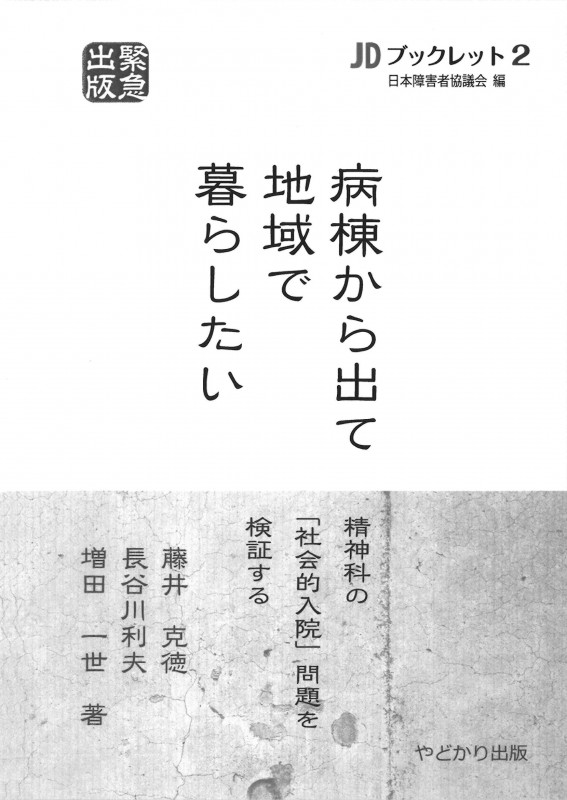 JDブックレット2
日本障害者協議会 編
緊急
出版
病棟から出て
地域で
暮らしたい
精神科の
「社会的入院」問題を
検証する
藤井 克徳
長谷川利夫
増田 一世 著
やどかり出版